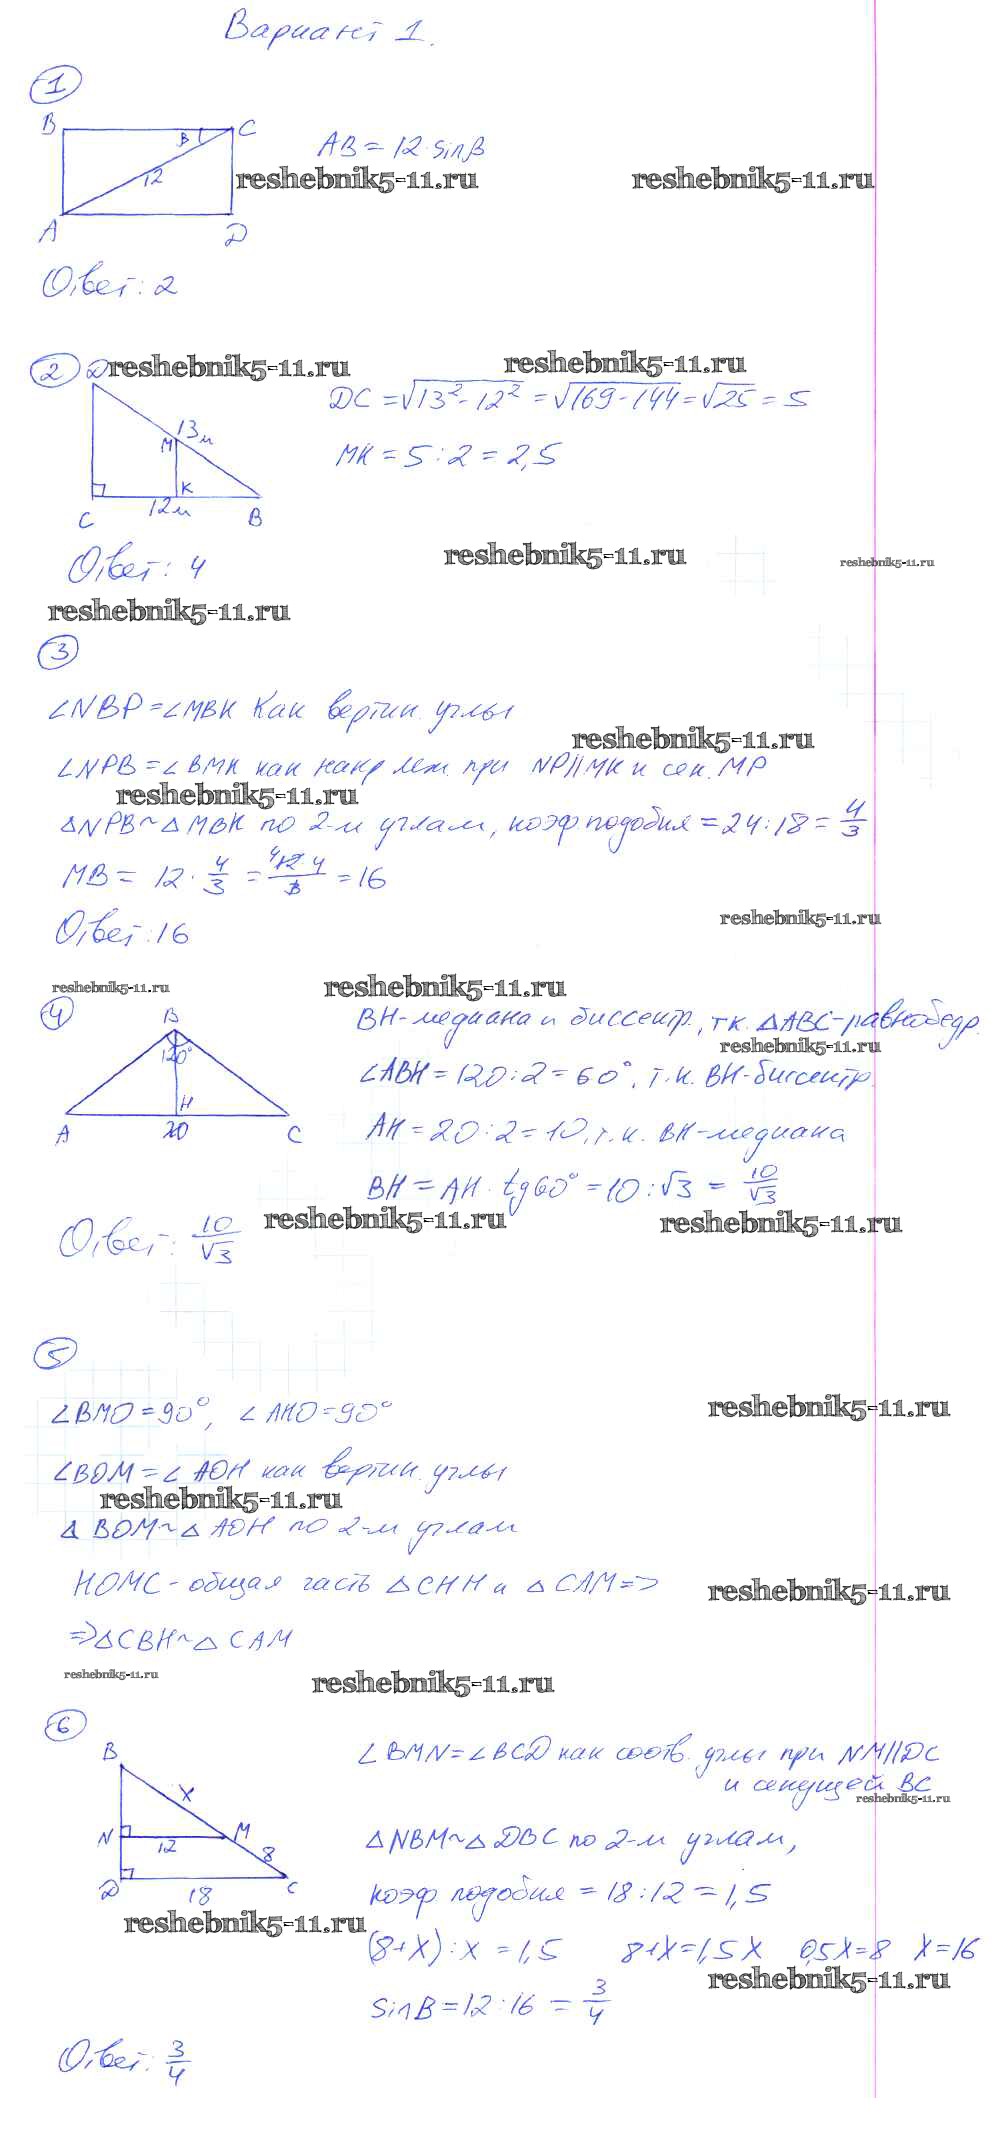 Вариант 1.
1
B C
β
12
A D
AB = 12·sinβ
reshebnik5-11.ru reshebnik5-11.ru
Ответ: 2
2 D reshebnik5-11.ru reshebnik5-11.ru
DC = √13²-12² = √169-144 = √25 = 5
13м
M
MK = 5:2 = 2,5
K
C 12м B
Ответ: 4
reshebnik5-11.ru reshebnik5-11.ru
reshebnik5-11.ru
3
∠NBP = ∠MBK как вертик. углы
reshebnik5-11.ru
∠NPB = ∠BMK как накр леж при NP||MK и сек. MP
reshebnik5-11.ru
△NPB ~ △MBK по 2-м углам, коэф подобия = 24:18 = 4/3
MB = 12 · 4/3 = 12·4/3 = 16
reshebnik5-11.ru
Ответ: 16
reshebnik5-11.ru reshebnik5-11.ru
4
B
120°
H
A 20 C
BH-медиана и биссектр., т.к. △ABC-равнобедр.
reshebnik5-11.ru
∠ABH = 120:2 = 60°, т.к. BH-биссектр.
AH = 20:2 = 10, т.к. BH-медиана
BH = AH · tg60° = 10:√3 = 10/√3
reshebnik5-11.ru reshebnik5-11.ru
Ответ: 10/√3
5
∠BMO = 90°, ∠AHO = 90°
reshebnik5-11.ru
∠BOM = ∠AOH как вертик. углы
reshebnik5-11.ru
△BOM ~ △AOH по 2-м углам
HOMC - общая часть △CHH и △CAM =>
reshebnik5-11.ru
=> △CBH ~ △CAM
reshebnik5-11.ru reshebnik5-11.ru
6
B
x
N M
12 8
D 18 C
∠BMN = ∠BCD как соотв. углы при NM||DC
и секущей BC
reshebnik5-11.ru
△NBM ~ △DBC по 2-м углам,
коэф подобия = 18:12 = 1,5
reshebnik5-11.ru
(8+x):x = 1,5 8+x=1,5x 0,5x=8 x=16
reshebnik5-11.ru
sinB = 12:16 = 3/4
Ответ: 3/4